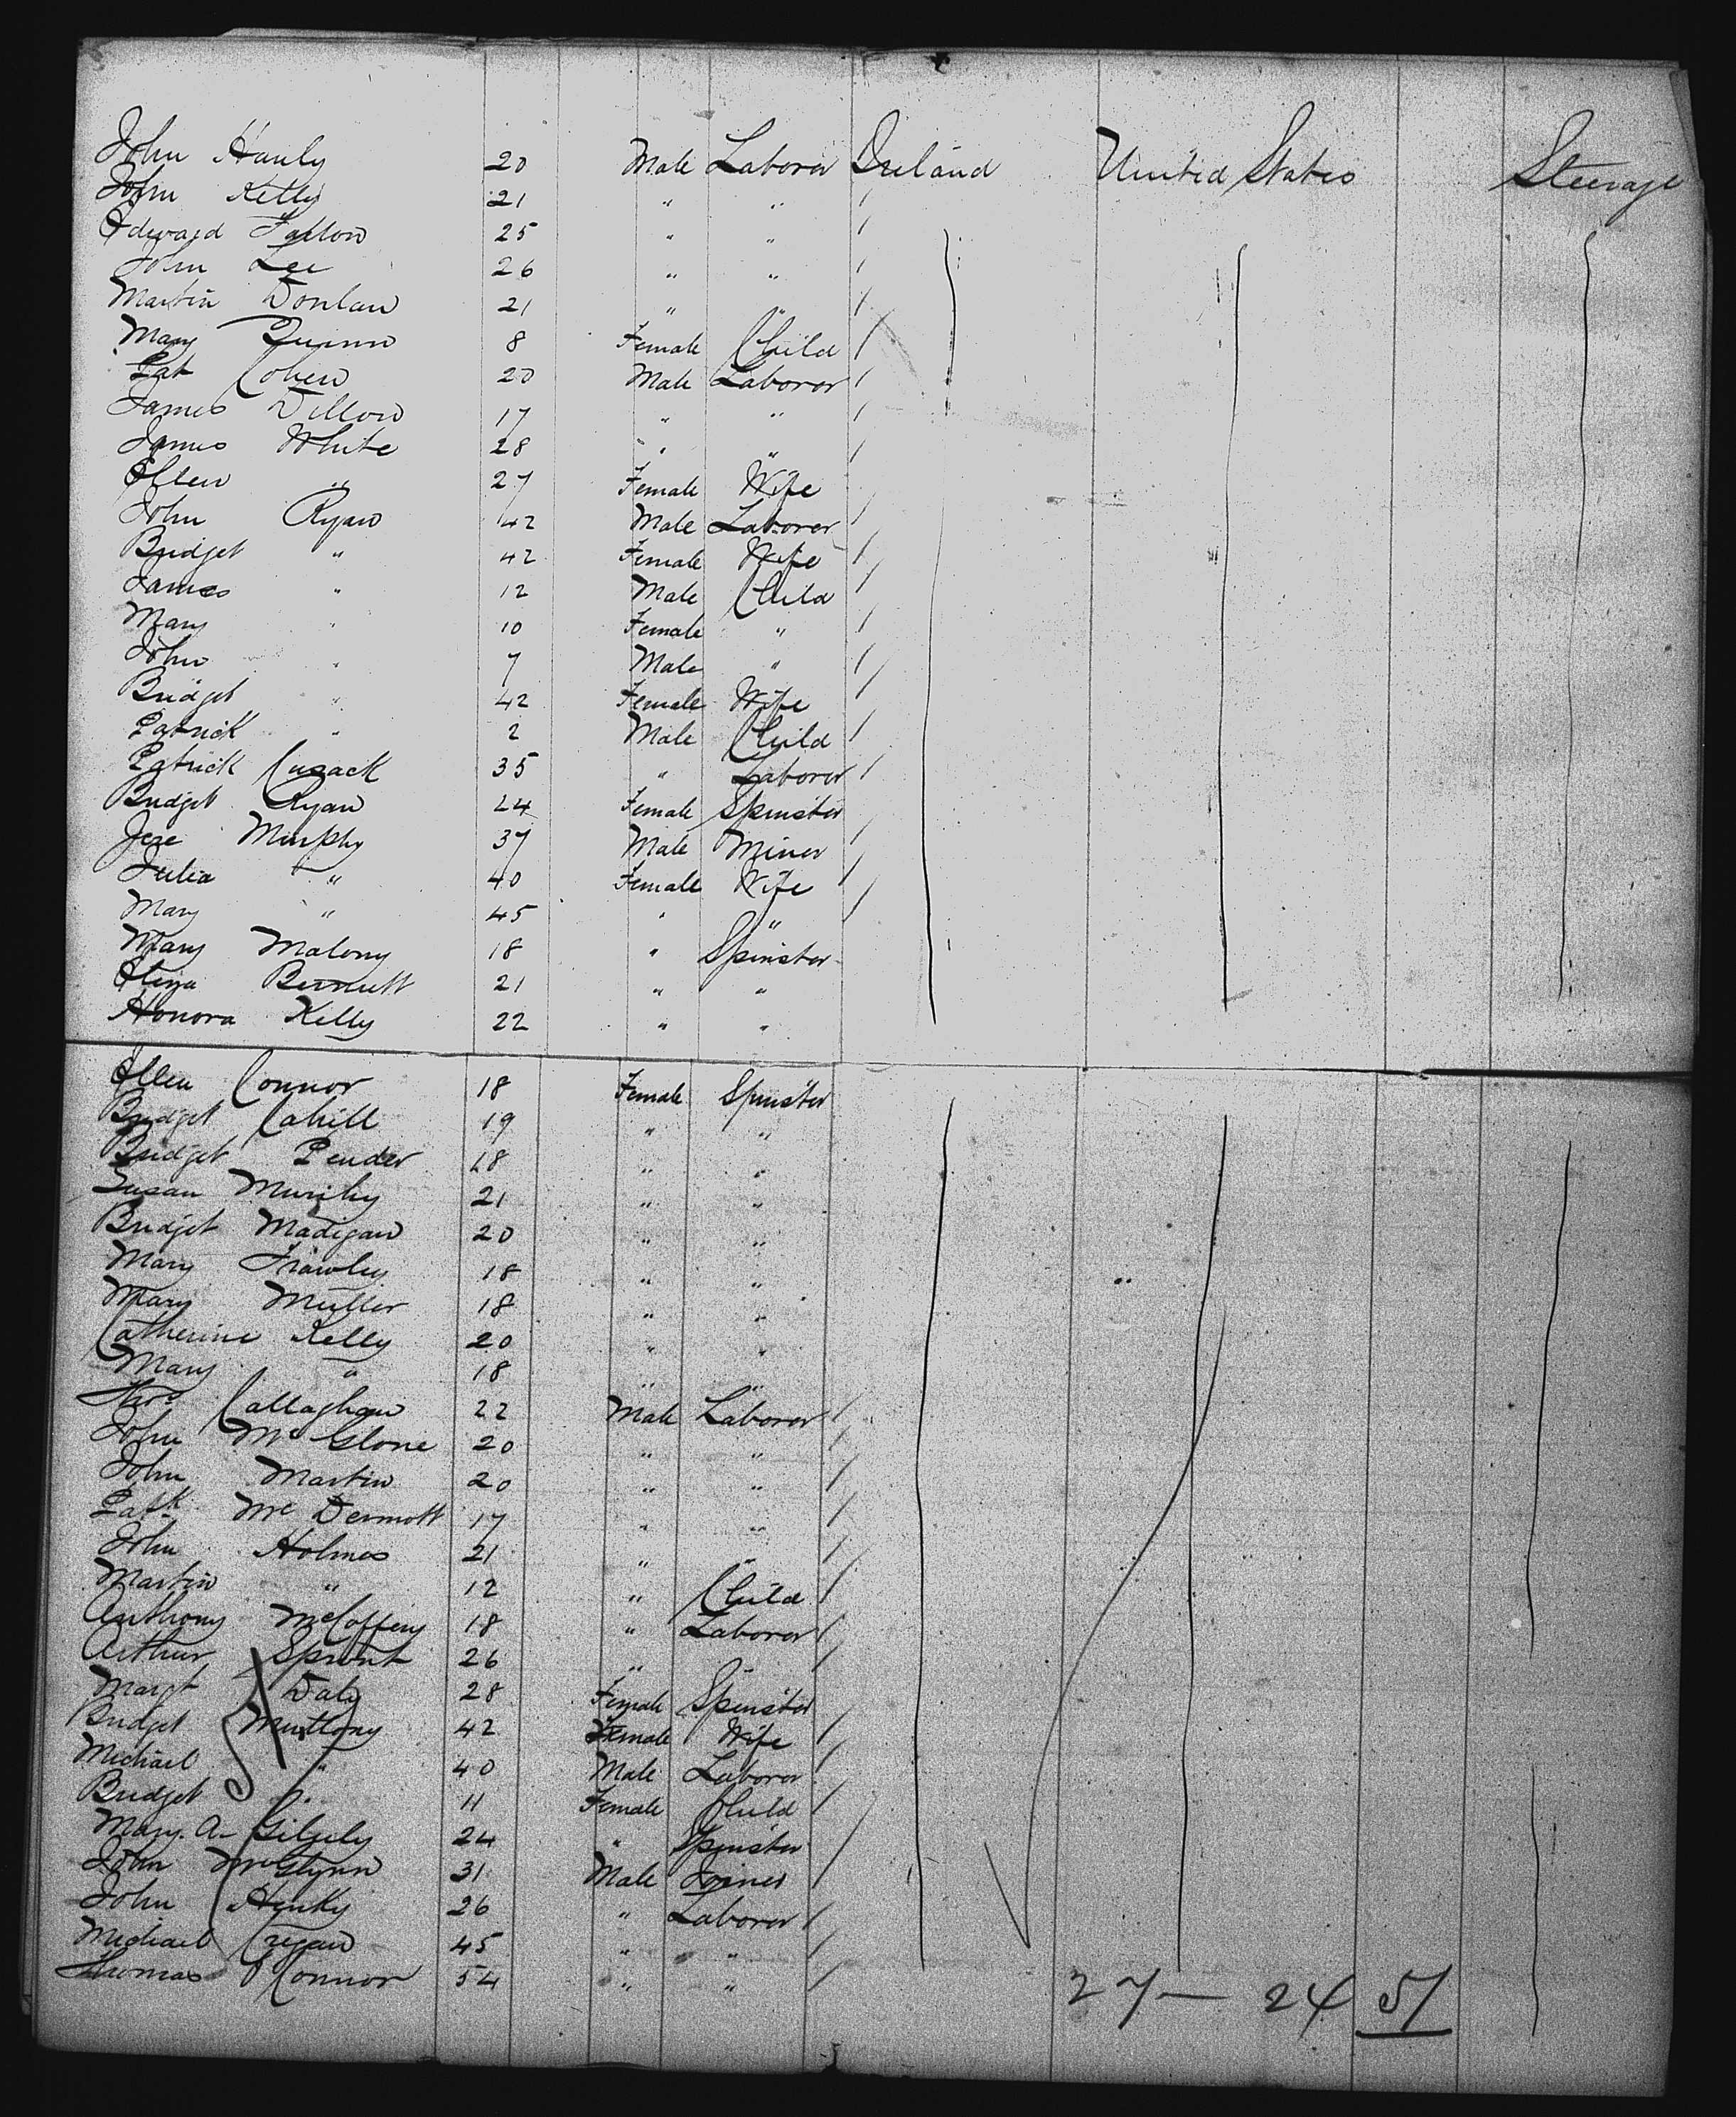 John Hanly 20 Male Laborer Ireland United States Steerage
John Kelly 21 " " /
Edward Fallon 25 " " /
John Lee 26 " " /
Martin Donlan 21 " " /
Mary Quinn 8 Female Child /
Pat Cohen 20 Male Laborer /
James Dillon 17 " " /
James White 28 " " /
Ellen " 27 Female Wife
John Ryan 42 Male Laborer /
Bridget " 42 Female Wife /
James " 12 Male Child /
Mary " 10 Female " /
John " 7 Male " /
Bridget " 42 Female Wife /
Patrick " 2 Male Child /
Patrick Cusack 35 " Laborer /
Bridget Ryan 24 Female Spinster
Jere Murphy 37 Male Miner /
Julia " 40 Female Wife /
Mary " 45 " " /
Mary Malony 18 " Spinster
Eliza 21 " "
Honora Kelly 22 " "
Ellen Connor 18 Female Spinster
Bridget Cahill 19 " "
Bridget Pender 18 " "
Susan Murphy 21 " "
Bridget Madigan 20 " "
Mary Frawley 18 " "
Mary Muller 18 " "
Catherine Kelly 20 " "
Mary " 18 " "
Thos Callaghan 22 Male Laborer /
John McGlone 20 " " /
John Martin 20 " " /
Patk McDermott 17 " " /
John Holmes 21 " " /
Martin " 12 " Child /
Anthony McCoffery 18 " Laborer /
Arthur Sprout 26 " " /
Margt Daly 28 Female Spinster
Bridget 42 Female Wife /
Michael " 40 Male Laborer /
Bridget " 11 Female Child /
Mary A- 24 " Spinster
John McGlynn 31 Male Joiner /
John 26 " Laborer /
Michael Cregan 45 " " /
Thomas O'Connor 54 " " /
27 — 24 51